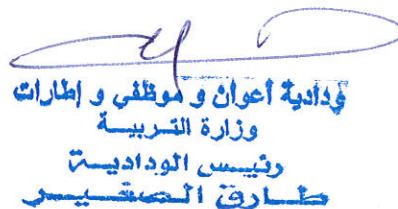 ودادية أعوان و موظفي و إطارات
وزارة التربية
رئيس الودادية
طارق الصغير